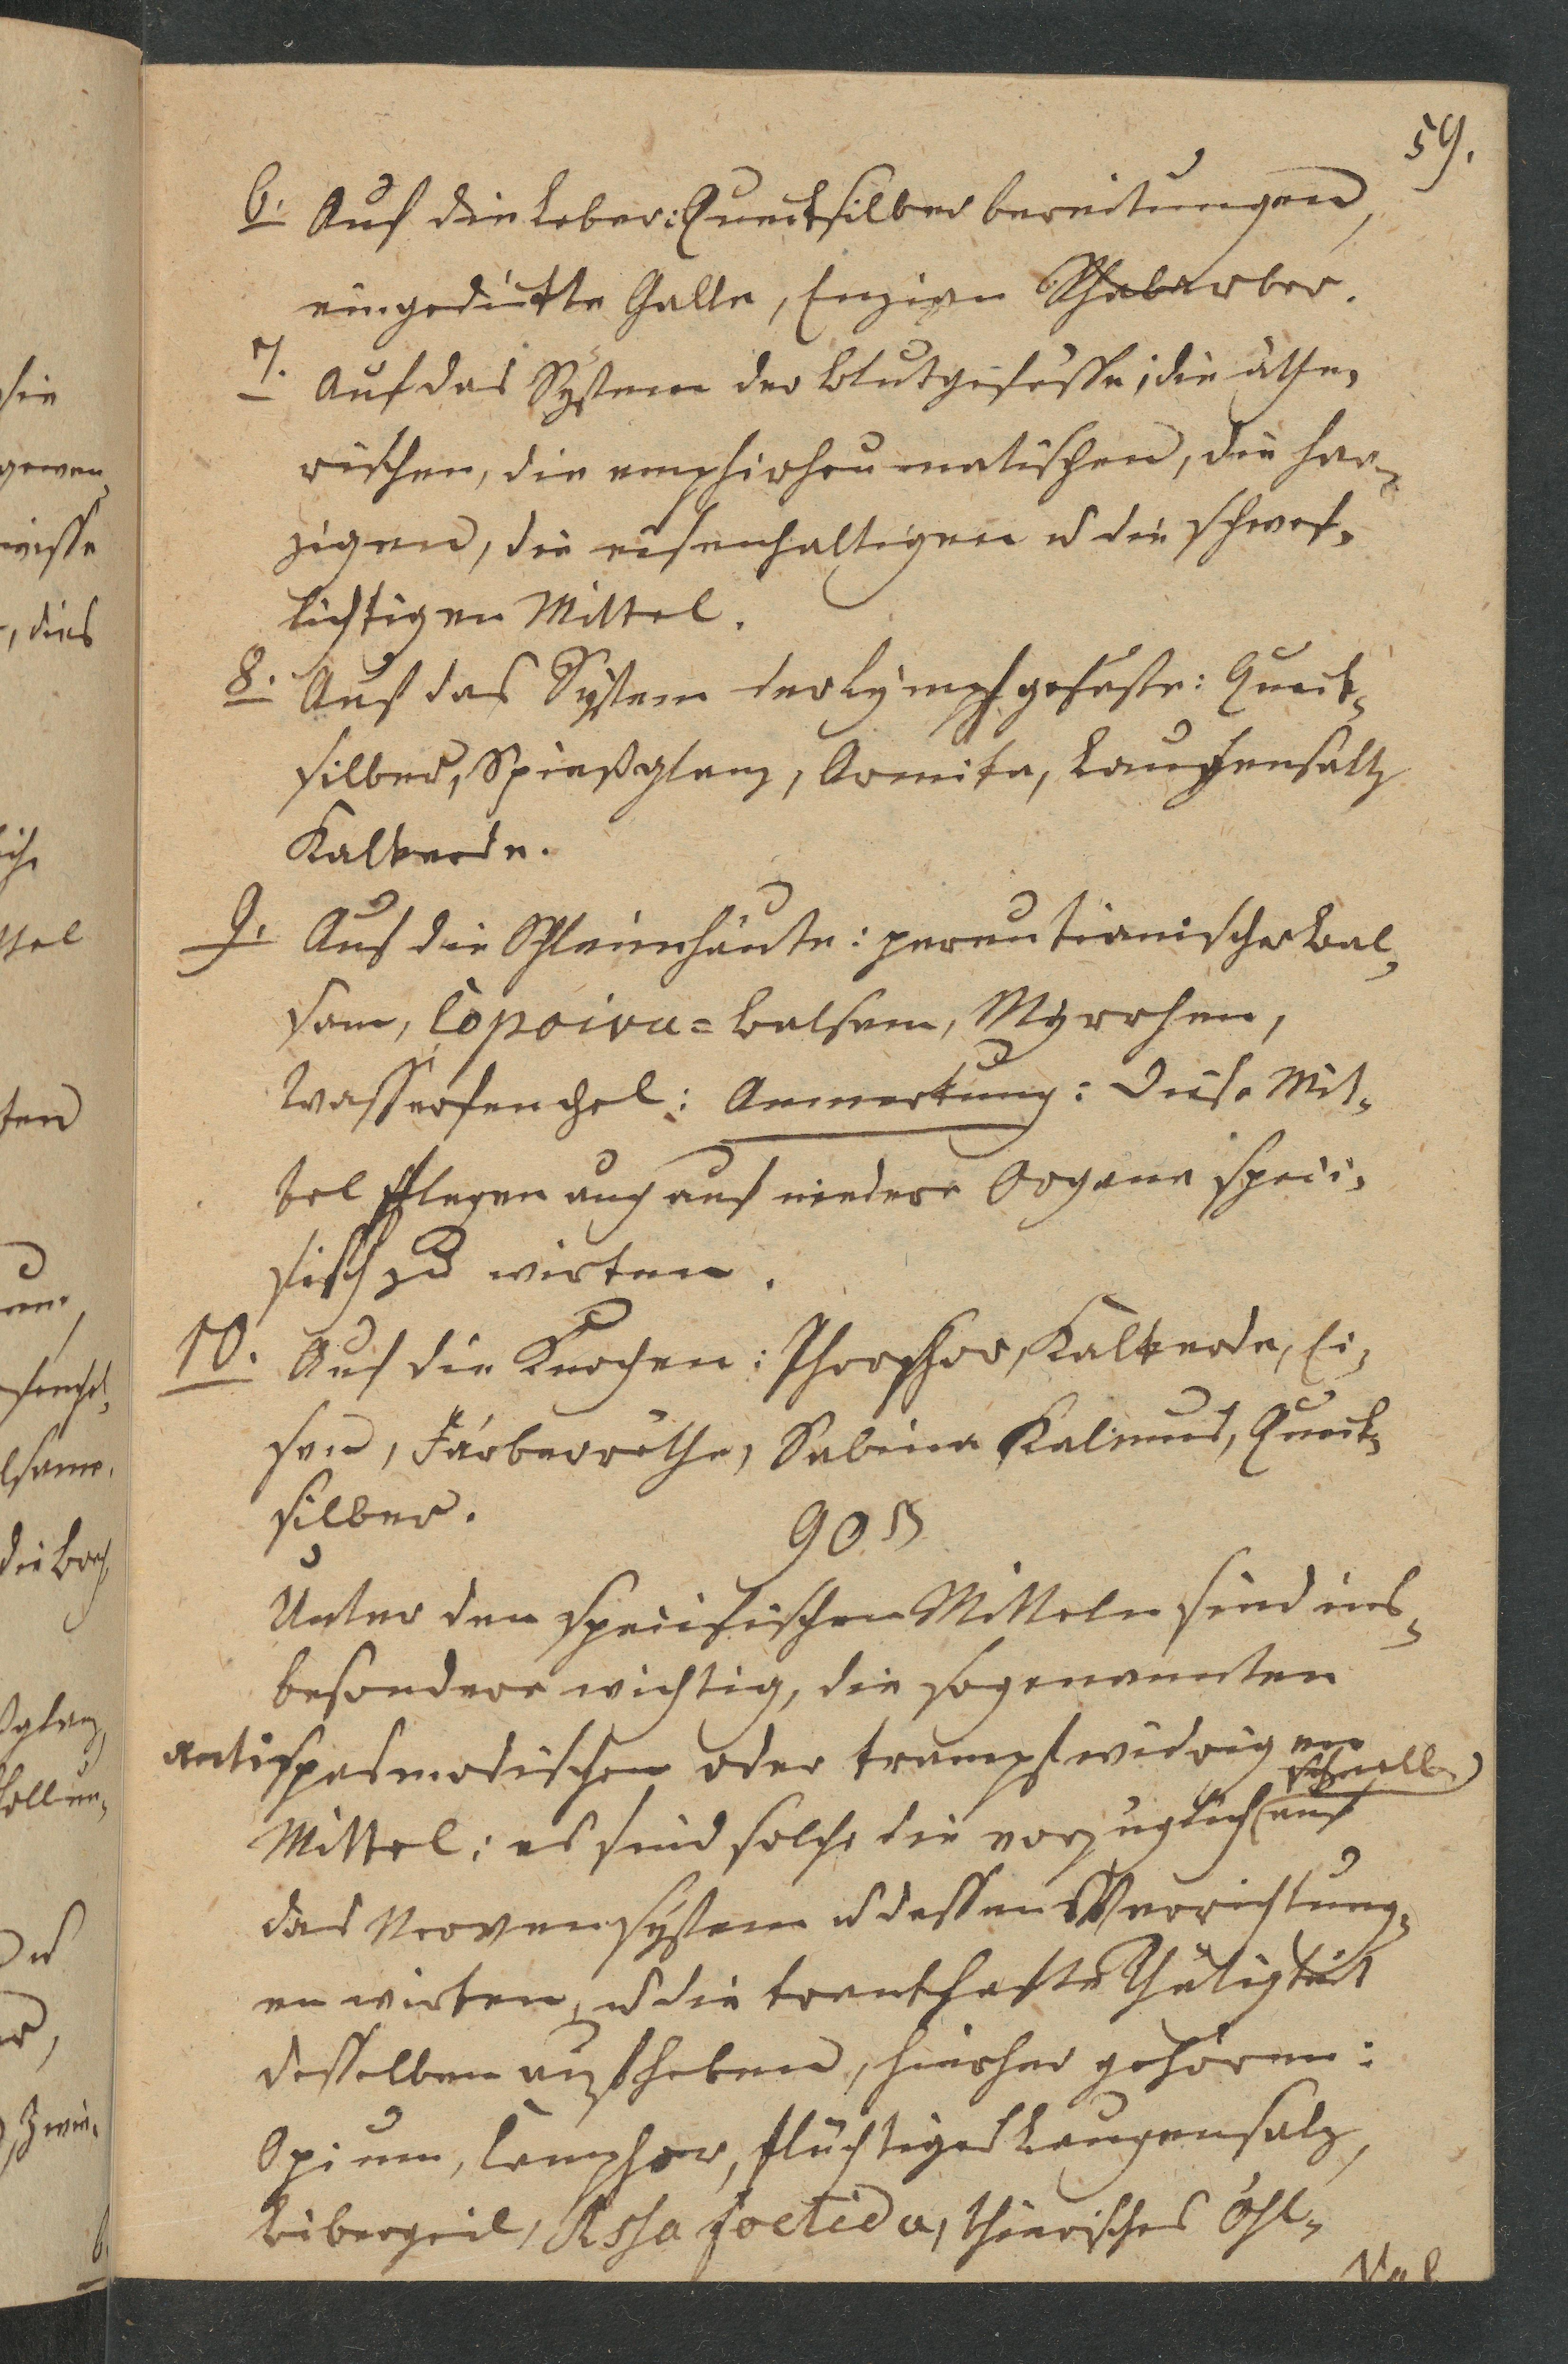 59.
6. Auf die Leber: Quecksilber bereitungen,
eingedickte Galle, Enzian Rhabarber.
7. Auf das System der Blutgefässe; die äthe,
rischen, die emphirheumatischen, die har,
zigen, die eisenhaltigen u die schwef,
lichtigen Mittel.
8. Auf das System der Lymphgefäße: Queck,
silber, Spießglanz, Arnika, Laugensaltz
Kalkerde.
9. Auf die Schleimhäute: peruvianischer Bal,
sam, Copaiva=Balsam, Myrrhen,
Wasserfenchel: Anmerkung: Diese Mit,
tel pflegen auch auf niedere Organe speci,
fisch zu wirken.
10. Auf die Knochen: Phosphor, Kalkerde, Ei,
sen, Färberröthe, Sabina Kalmus, Queck,
silber.
90 §
Unter den specifischen Mitteln sind ins,
besondere wichtig, die sogenannten
antispasmodischen oder krampfwidrigen
schnell
Mittel: es sind solche die vorzüglich auf
das Nervensystem u dessen Verrichtung,
en wirken, u die krankhafte Thätigkeit
desselben aufheben, hierher gehören:
Opium, Camphor, flüchtiges Laugensalz,
Bibergeil, Assa foetida, thierisches Öhl,
sie
gewen,
wisse
, dies
liche
ttel
ten
fenchel,
lsam.
die Bec,
ßglanz,
u
r,
Zwie,
6.